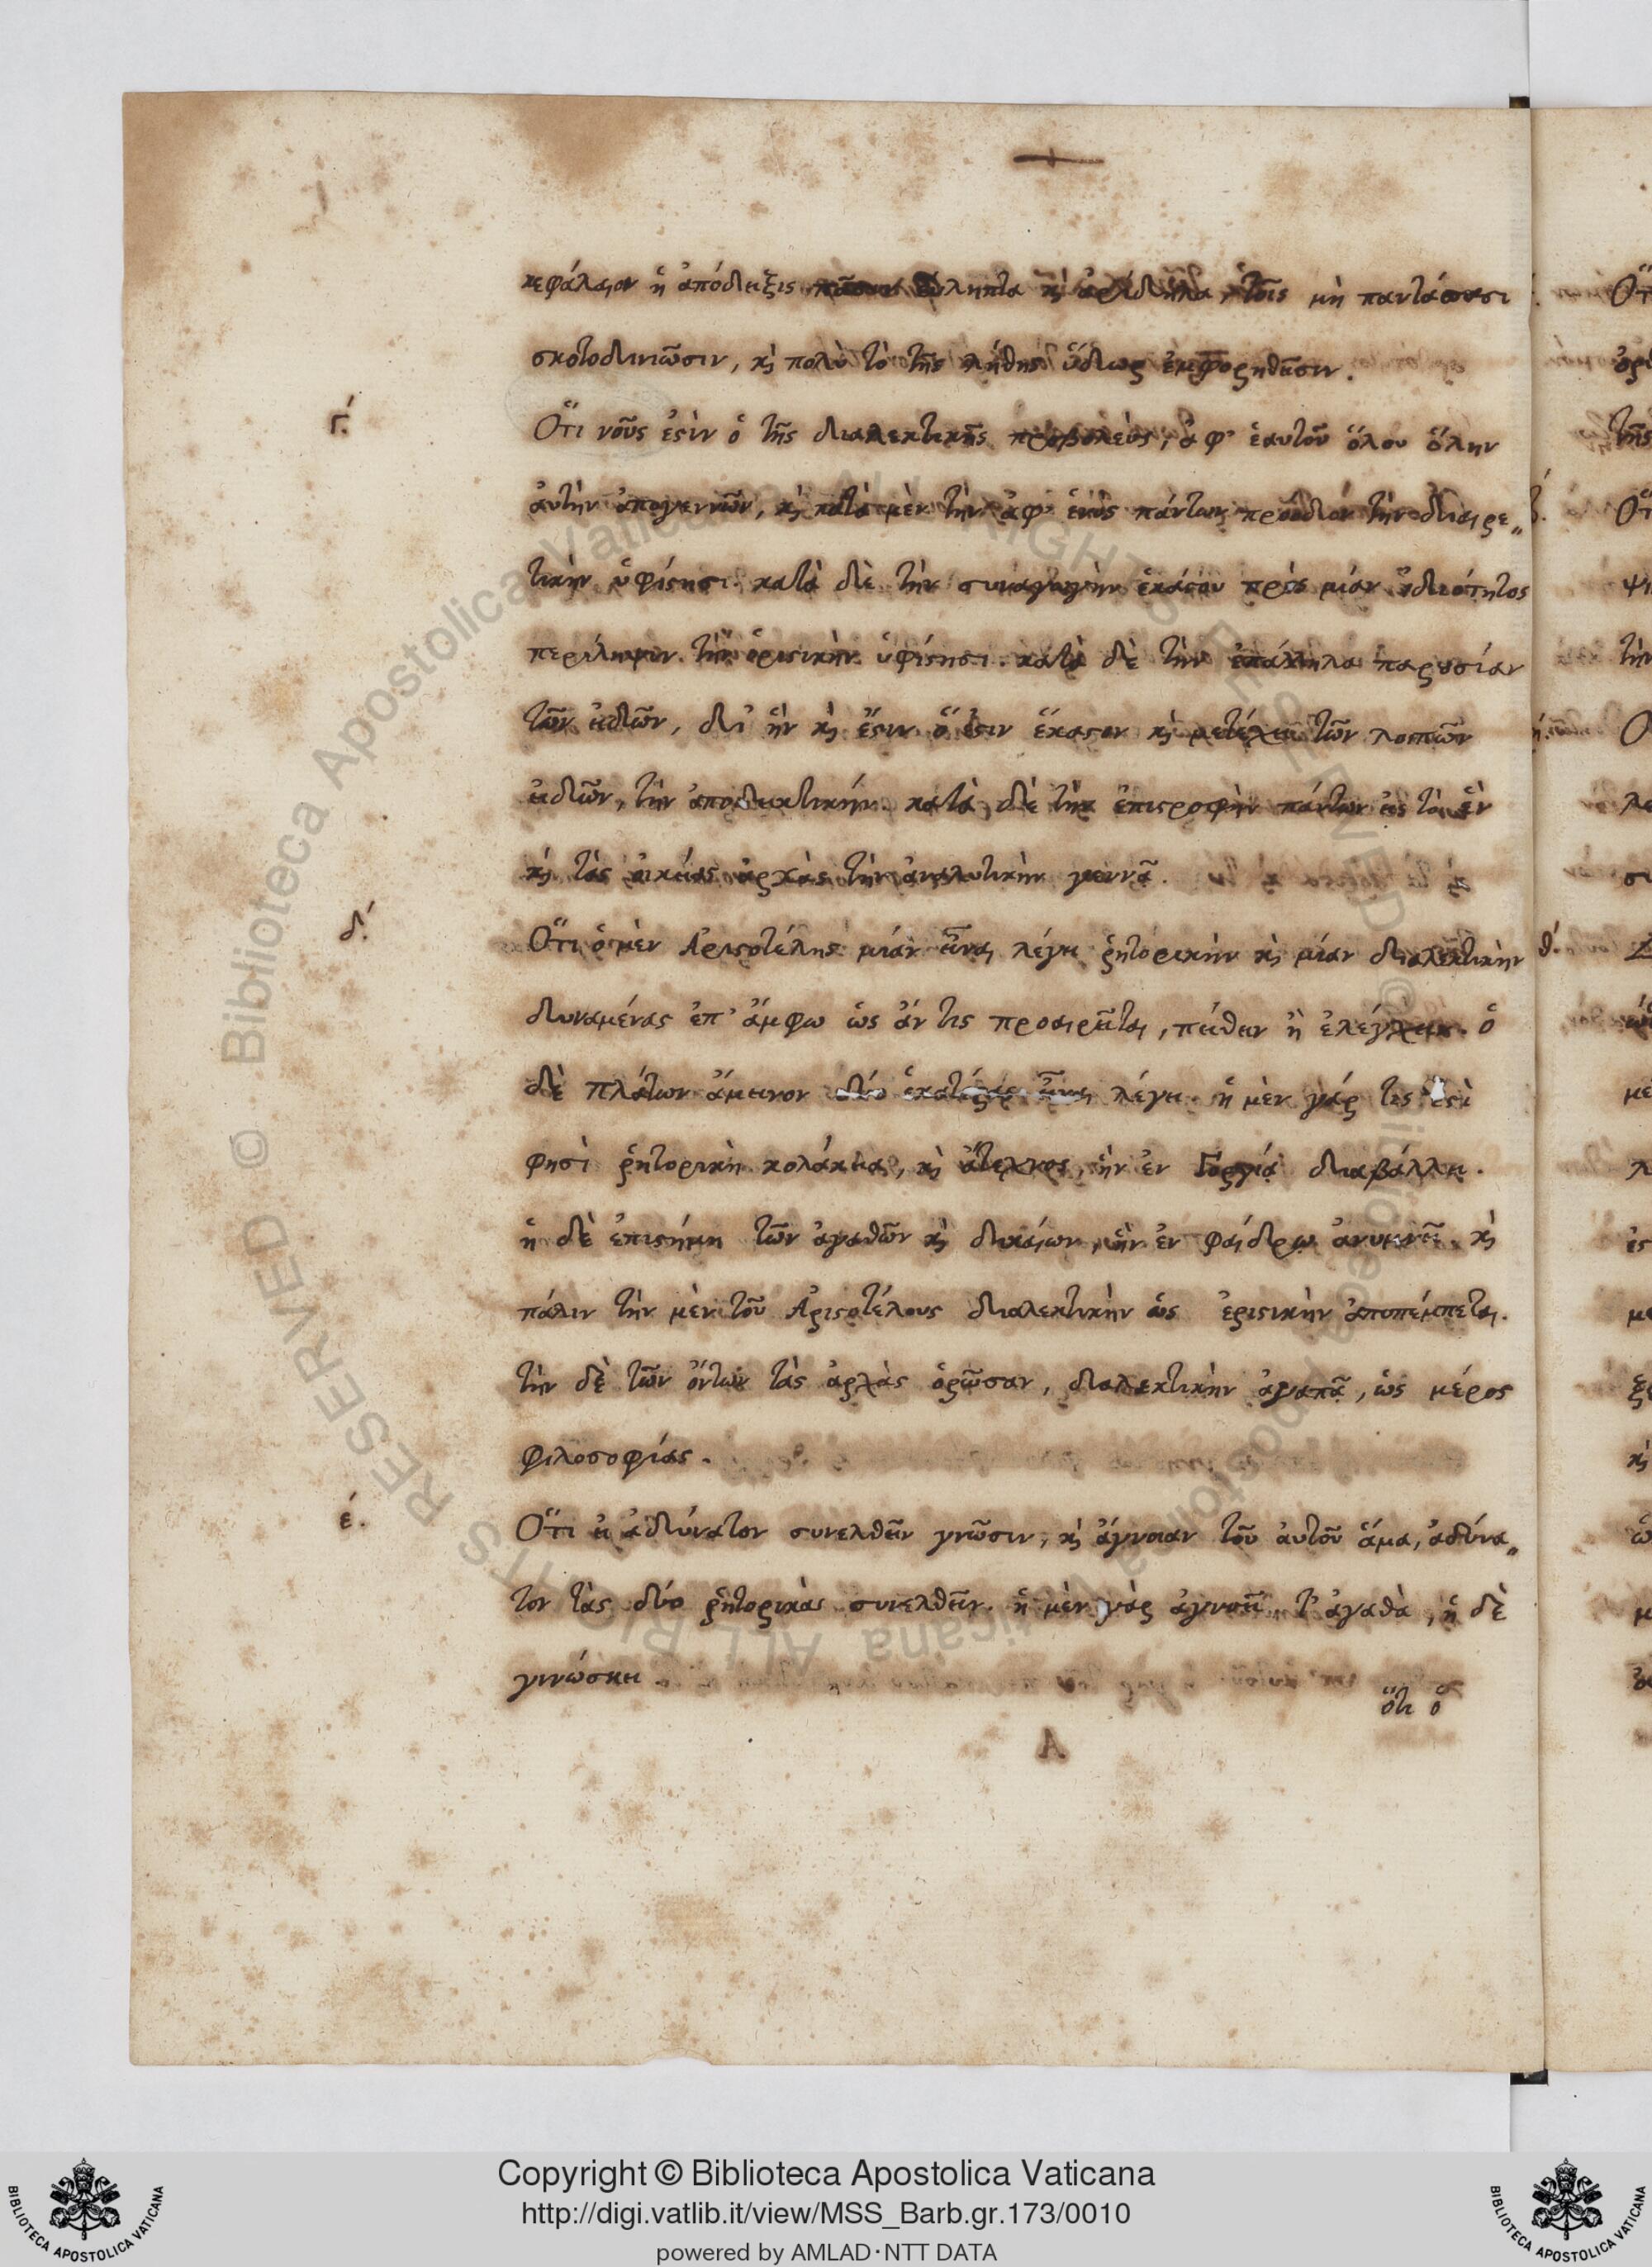 κεφάλαιον ἡ ἀπόδειξις ληπτα κὶ ἀρίδηλα, τοῖς μὴ παντάπασι
σκοτοδινιῶσιν, κὶ πολὺ τὸ τῆς λήθης ὕδωρ ἐμφορηθεῖσιν.
γ´. Ὅτι νοῦς ἐστὶν ὁ τῆς διαλεκτικῆς προβολεὺς, ἀφ' ἑαυτοῦ ὅλου ὅλην
ἀυτὴν ἀπογεννῶν, κὶ κατὰ μὲν τὴν ἀφ' ἑνὸς πάντων πρόοδον τὴν διαιρε„
τικὴν ὑφίστησι. κατὰ δὲ τὴν συναγωγὴν ἑκάστου πρὸς μίαν ἰδιότητος
περίληψιν τὴν ὁριστικὴν ὑφίστησι. κατὰ δὲ τὴν ἐπάλληλα παρουσίαν
τῶν εἰδῶν, δι' ἣν κὶ ἔστιν ὅ ἐστιν ἕκαστον κὶ μετέχει τῶν λοιπῶν
εἰδῶν, τὴν ἀποδεικτικήν. κατὰ δὲ τὴν ἐπιστροφὴν πάντων εἰς τὸ ἓν
κὶ τὰς οἰκείας ἀρχὰς τὴν ἀναλυτικὴν γεννᾷ.
δ´. Ὅτι ὁ μὲν Ἀριστοτέλης μίαν εἶναι λέγει ῥητορικὴν κὶ μίαν διαλεκτικὴν
δυναμένας ἐπ' ἄμφω ὡς ἄν τις προαιρεῖται, πείθειν ἢ ἐλέγχειν. ὁ
δὲ πλάτων ἄμεινον δύο ἑκατέρας εἶναι λέγει. ἡ μὲν γάρ τις ἐστὶ
φησὶ ῥητορικὴ κολάκεια, κὶ ἄτεχνος, ἣν ἐν Γοργίᾳ διαβάλλει.
ἡ δὲ ἐπιστήμη τῶν ἀγαθῶν κὶ δικαίων, ἣν ἐν φαίδρῳ ἀνυμνεῖ. κὶ
πάλιν τὴν μὲν τοῦ Ἀριστοτέλους διαλεκτικὴν ὡς ἐριστικὴν ἀποπέμπεται.
τὴν δὲ τῶν ὄντων τὰς ἀρχὰς ὁρῶσαν, διαλεκτικὴν ἀγαπᾷ, ὡς μέρος
φιλοσοφίας.
έ. Ὅτι εἰ ἀδύνατον συνελθεῖν γνῶσιν, κὶ ἄγνοιαν τοῦ ἀυτοῦ ἅμα, ἀδύνα„
τον τὰς δύο ῥητορικὰς συνελθεῖν. ἡ μὲν γὰρ ἀγνοεῖ τ' ἀγαθὰ, ἡ δὲ
γινώσκει.
ὅτι ὁ
Copyright © Biblioteca Apostolica Vaticana
http://digi.vatlib.it/view/MSS_Barb.gr.173/0010
powered by AMLAD·NTT DATA